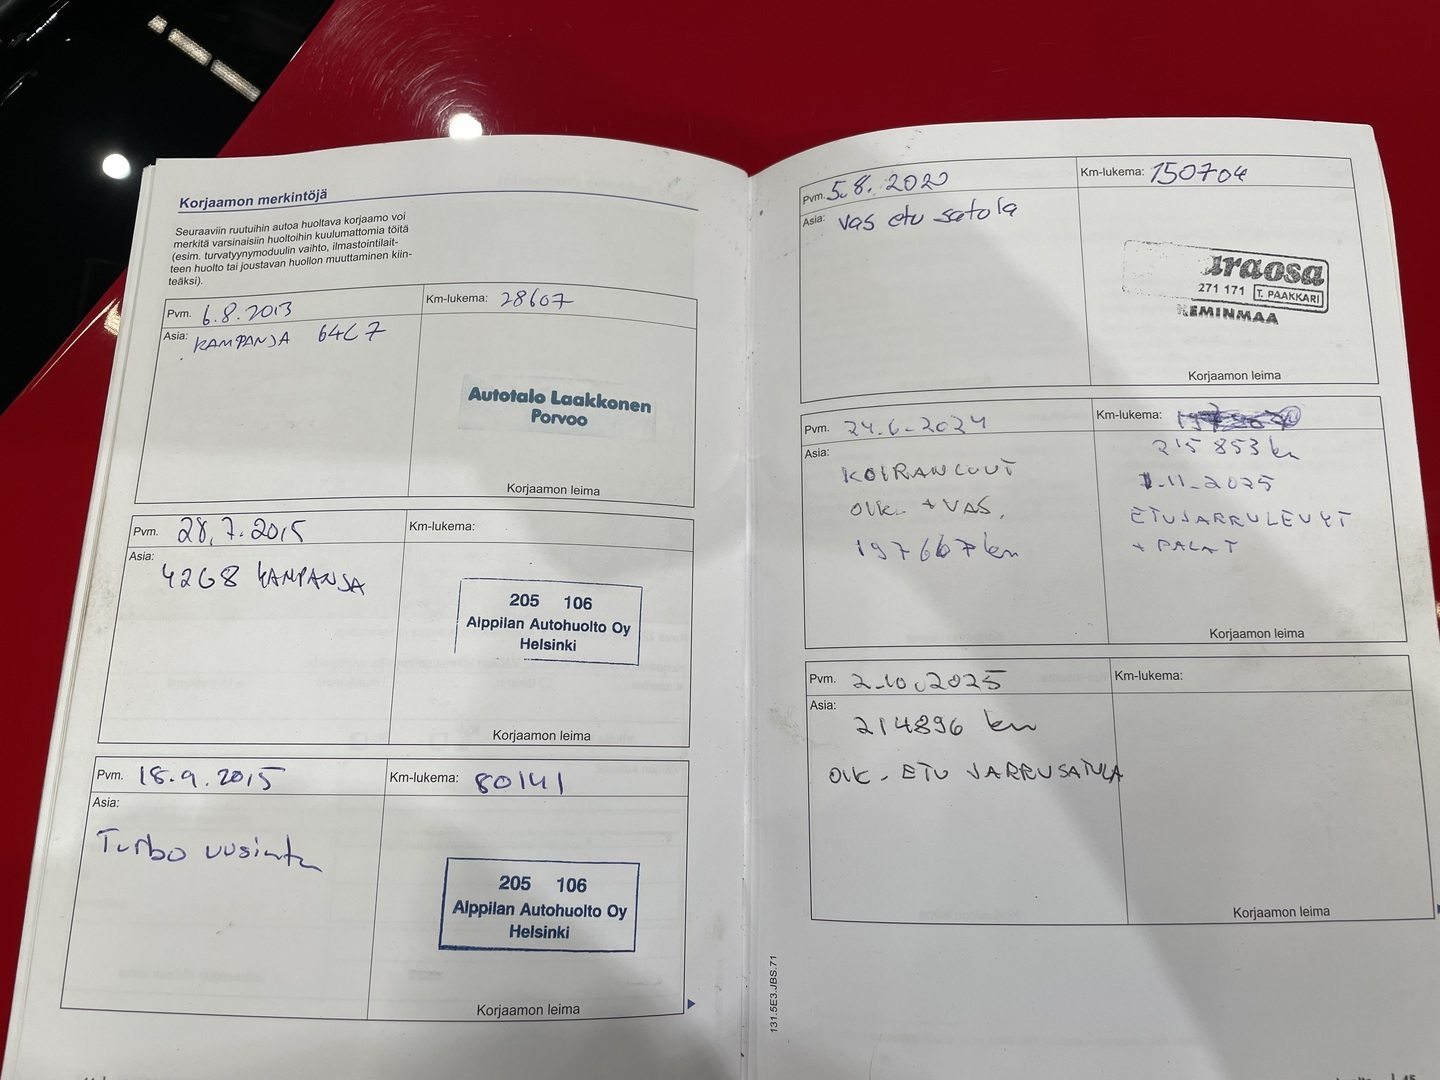 Korjaamon merkintöjä
Seuraaviin ruutuihin autoa huoltava korjaamo voi
merkitä varsinaisiin huoltoihin kuulumattomia töitä
(esim. turvatyynymoduulin vaihto, ilmastointilait-
teen huolto tai joustavan huollon muuttaminen kiin-
teäksi).
Pvm. 6.8.2013
Km-lukema: 28607
Asia: KAMPANJA 64C7
Autotalo Laakkonen
Porvoo
Korjaamon leima
Pvm. 28.7.2015
Km-lukema:
Asia: 42G8 KAMPANJA
205 106
Alppilan Autohuolto Oy
Helsinki
Korjaamon leima
Pvm. 18.9.2015
Km-lukema: 80141
Asia:
Turbo uusinta
205 106
Alppilan Autohuolto Oy
Helsinki
Korjaamon leima
Pvm. 5.8.2020
Km-lukema: 150704
Asia: vas etu satola
raosa
271 171 T. PAAKKARI
KEMINMAA
Korjaamon leima
Pvm. 24.6-2024
Km-lukema:
Asia:
KOIRANLUUT
OIK. + VAS.
197667 km
215 853 km
1.11.2025
ETUJARRULEVYT
+ PALAT
Korjaamon leima
Pvm. 2.10.2025
Km-lukema:
Asia:
214896 km
OIK. ETU JARRUSATULA
Korjaamon leima
131.5E3.JBS.71